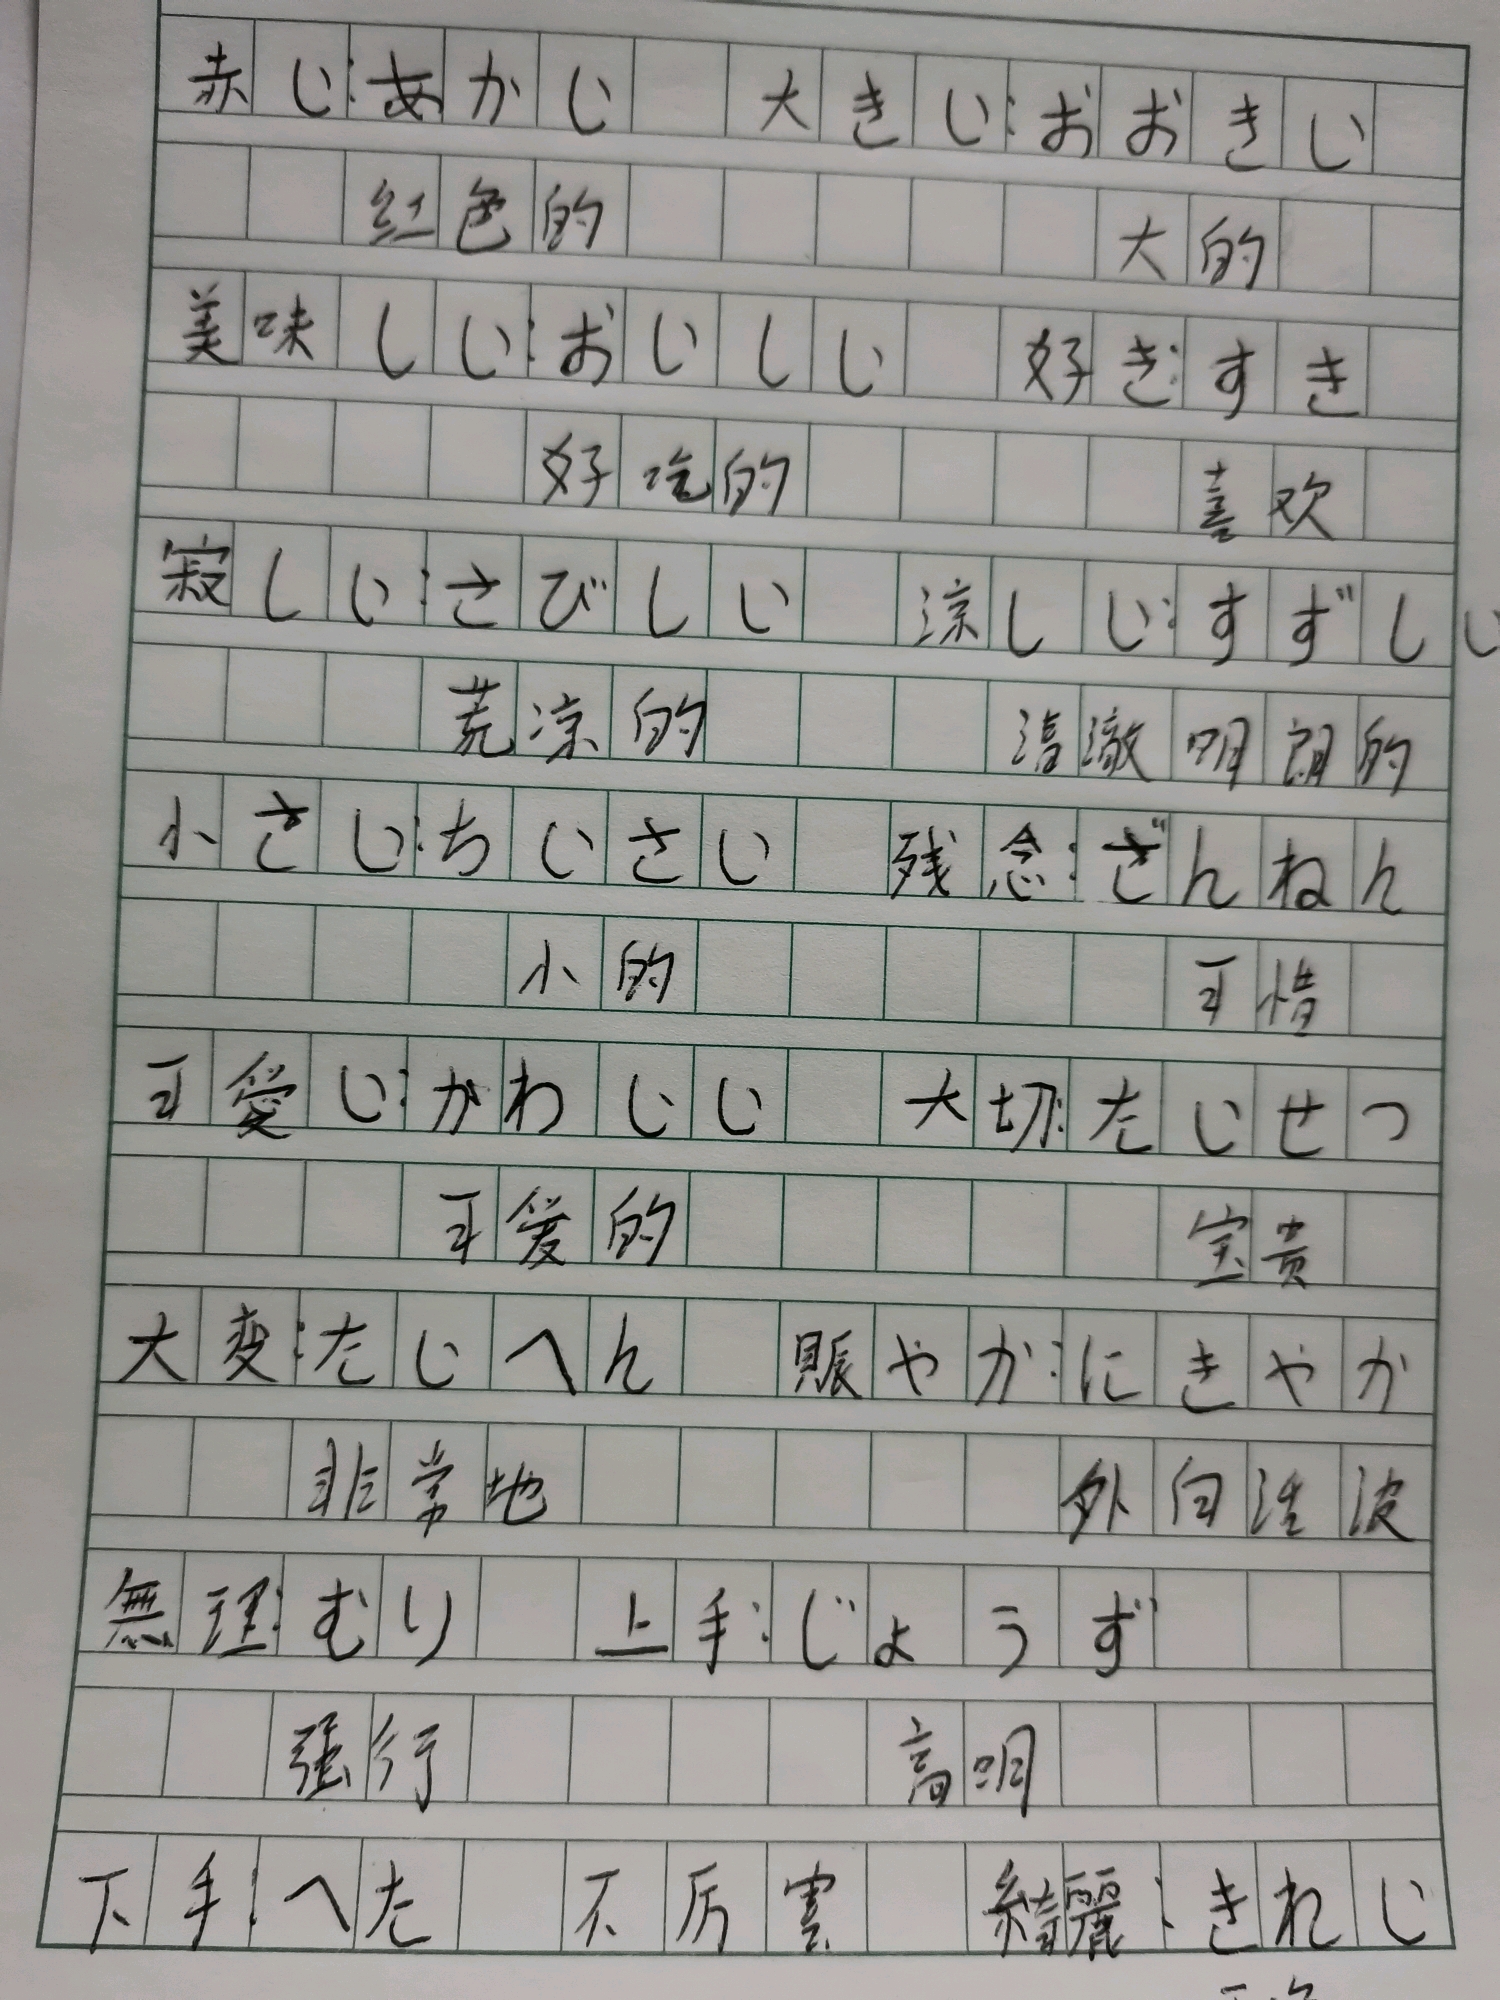 赤い:あかい 大きい:おおきい
红色的 大的
美味しい:おいしい 好き:すき
好吃的 喜欢
寂しい:さびしい 涼しい:すずしい
荒凉的 清澈明朗的
小さい:ちいさい 残念:ざんねん
小的 可惜
可愛い:かわいい 大切:たいせつ
可爱的 宝贵
大変:たいへん 賑やか:にきやか
非常地 外向活波
無理:むり 上手:じょうず
强行 高明
下手:へた 不厉害 綺麗:きれい